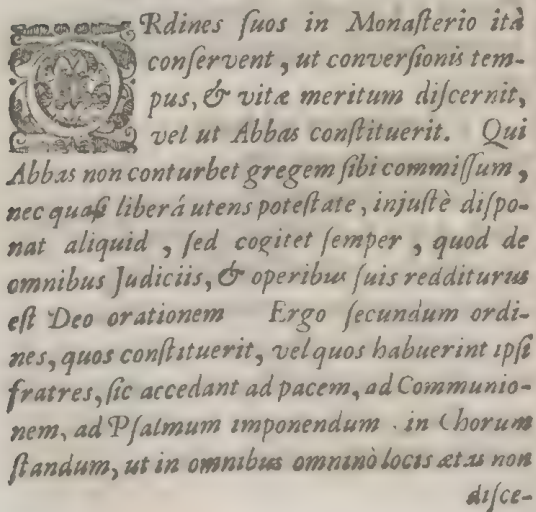 ORdines ſuos in Monaſterio ità
conſervent, ut converſionis tem-
pus, & vitæ meritum diſcernit,
vel ut Abbas conſtituerit. Qui
Abbas non conturbet gregem ſibi commiſſum,
nec quaſi liberá utens poteſtate, injuſtè diſpo-
nat aliquid, ſed cogitet ſemper, quod de
omnibus Judiciis, & operibus ſuis redditurus
eſt Deo orationem Ergo ſecundum ordi-
nes, quos conſtituerit, vel quos habuerint ipſi
fratres, ſic accedant ad pacem, ad Communio-
nem, ad Pſalmum imponendum. in Chorum
ſtandum, ut in omnibus omninò locis ætas non
diſce-